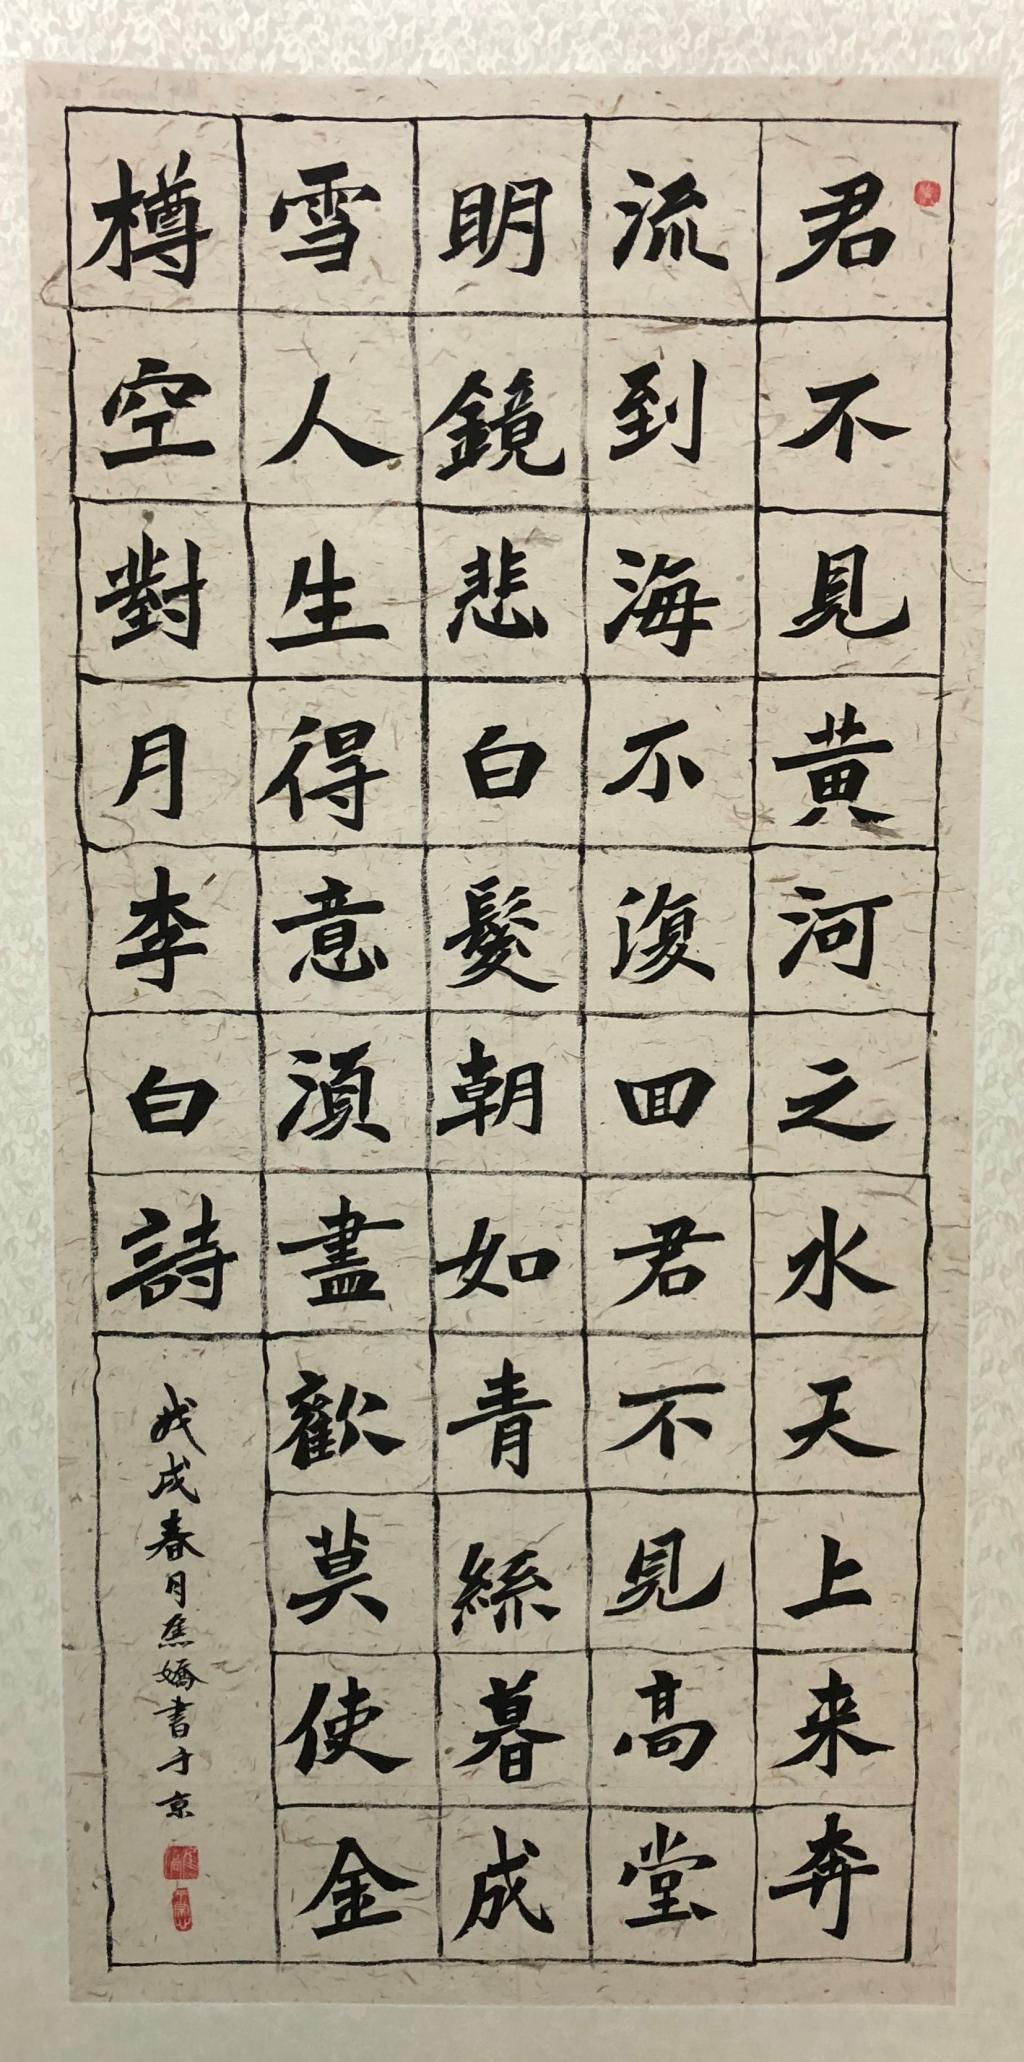 君不見黄河之水天上来奔
流到海不復回君不見高堂
明鏡悲白髮朝如青絲暮成
雪人生得意須盡歡莫使金
樽空對月李白詩
戊戌春月焦嬌書于京